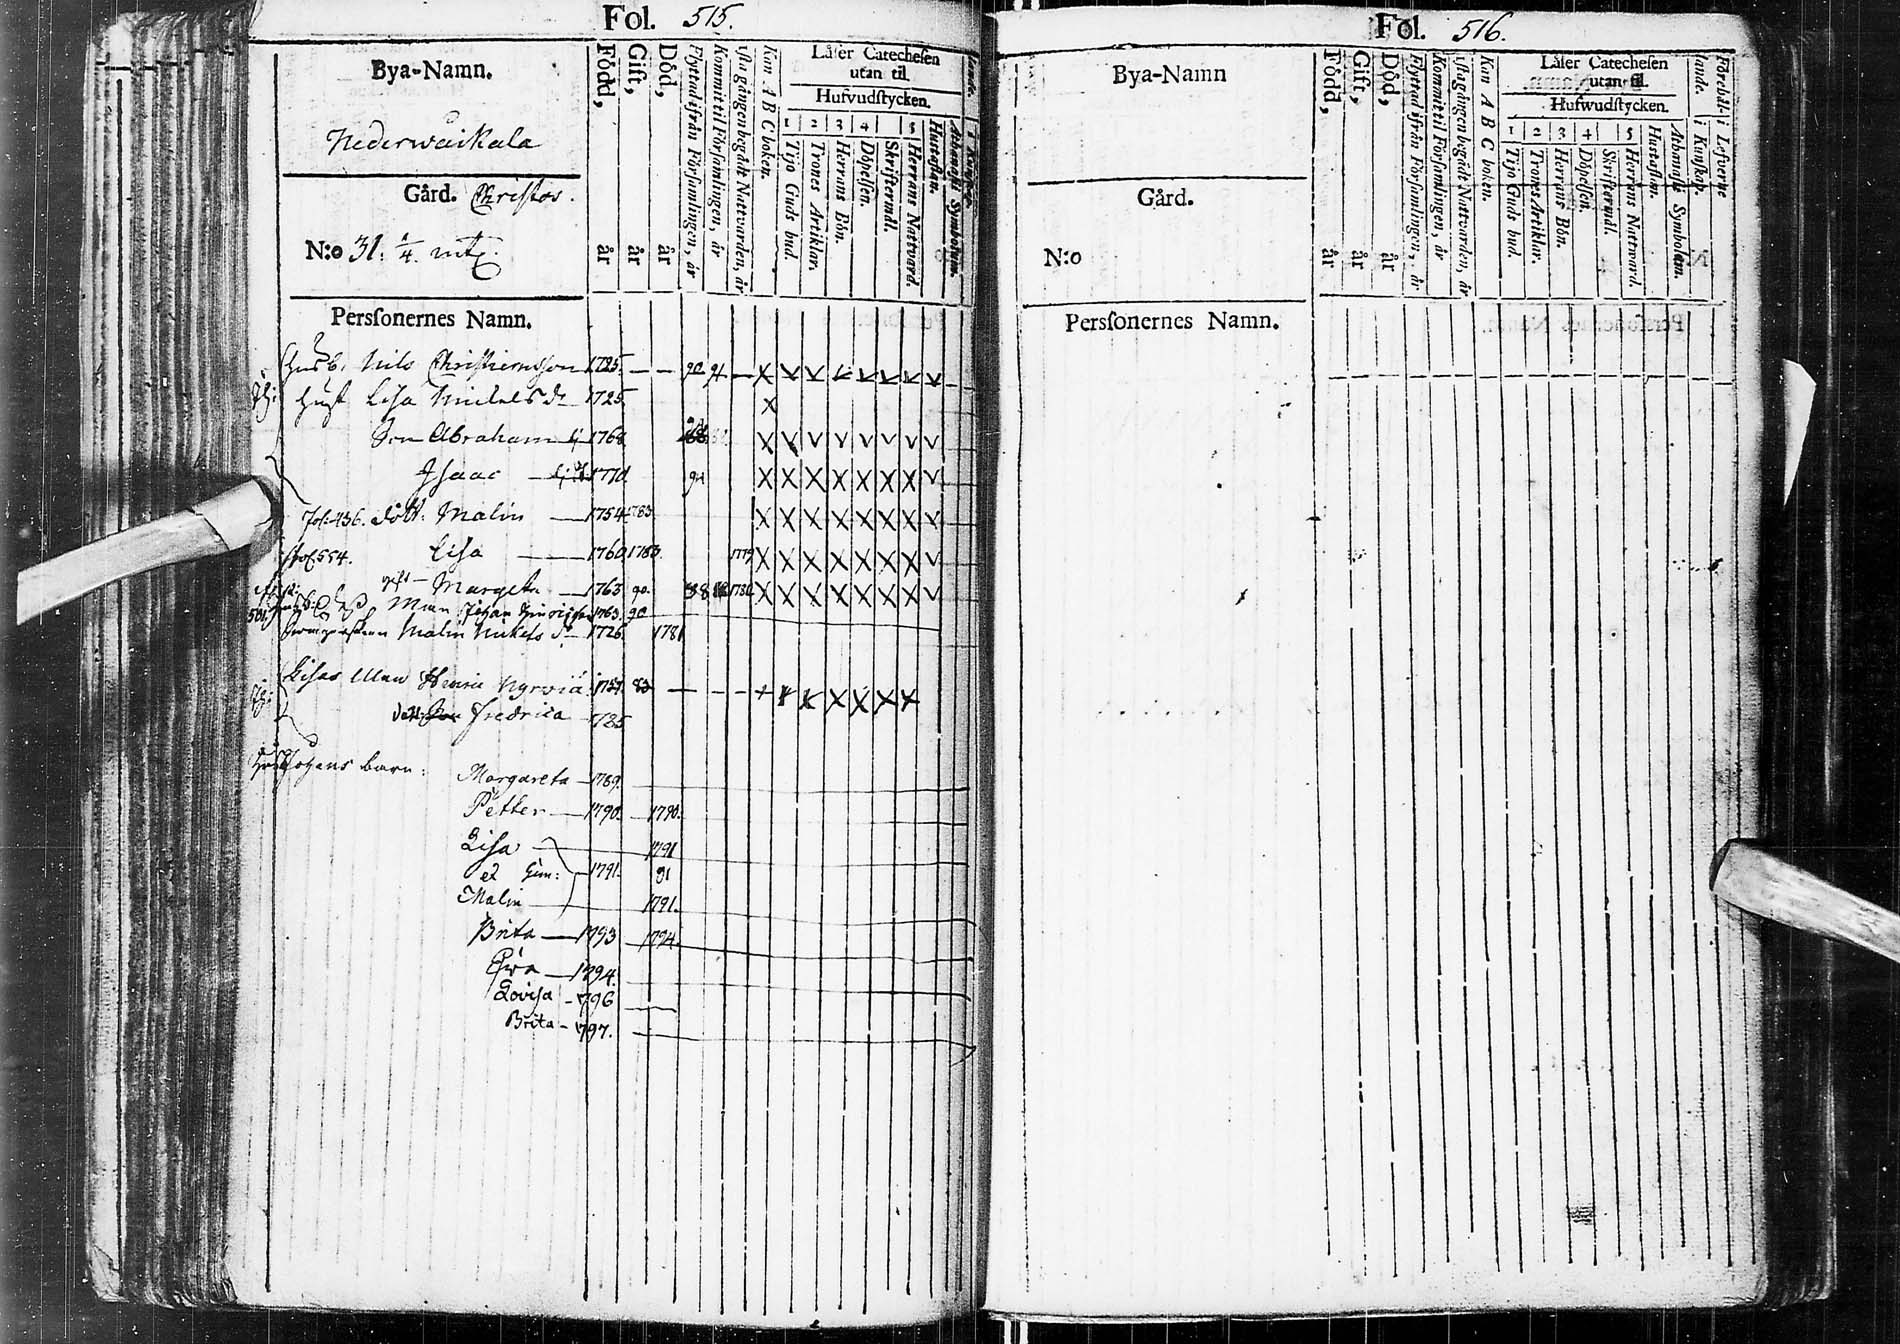 Fol. 515.
Bya-Namn.
Nederwaikala
Gård. Christos.
N:o 31. 1/4. mtl.
Persſonernes Namn.
Född, år
Gift, år
Död, år
Flyttad ifrån Förſamlingen, år
Kommit til Förſamlingen, år
Kan A B C boken.
Låſer Catecheſen
utan til.
Hufvudſtycken.
1 2 3 4 5
Tijo Guds bud.
Trones Artiklar.
Herrans Bön.
Döpelſen.
Skriftermål.
Herrans Nattvard.
Huſtaflan.
Athanaſii Symbolum.
Husb. Nils Chriſtiernſson 1725. — — 90 91 —
Huſt Liſa Mickelsdr 1725.
Son Abraham 1768
Iſaac 1770 91
Fol. 436. dott. Malin — 1754 783
Fol 554. Liſa — 1760 1783. 1779
gift — Margeta — 1763 90. 88
Man Johan 1763. 90
Malin Mickelsdr 1726. 1781
Liſas Man Henric 1757. 83
dott. Fredrica 1785
Johans barn: Margareta — 1789.
Petter — 1790. 1790.
Liſa 1791
et Gem: 1791. 91
Malin 1791.
Brita — 1793 1794.
Ewa — 1794.
Loviſa — 1796
Brita — 1797.
Fol. 516.
Bya-Namn
Gård.
N:o
Persſonernes Namn.
Född, år
Gift, år
Död, år
Flyttad ifrån Förſamlingen, år
Kommit til Förſamlingen, år
Kan A B C boken.
Låſer Catecheſen
utan-til.
Hufwudſtycken.
1 2 3 4 5
Tijo Guds bud.
Trones Artiklar.
Herrans Bön.
Döpelſen.
Skriftermål.
Herrans Nattward.
Huſtaflan.
Athanaſii Symbolum.